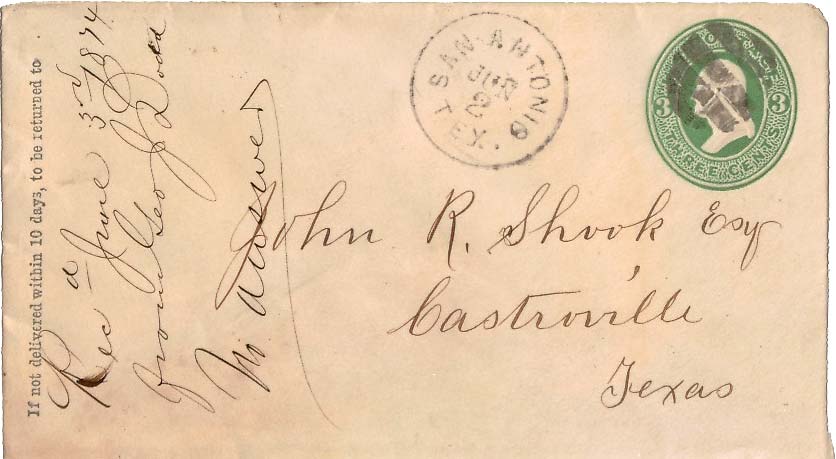 If not delivered within 10 days, to be returned to
Rec'd June 3rd 1874
from Geo J Dodd
No answer
SAN ANTONIO
JUN
2
TEX.
3 3
THREE CENTS
John R. Shook Esq
Castroville
Texas